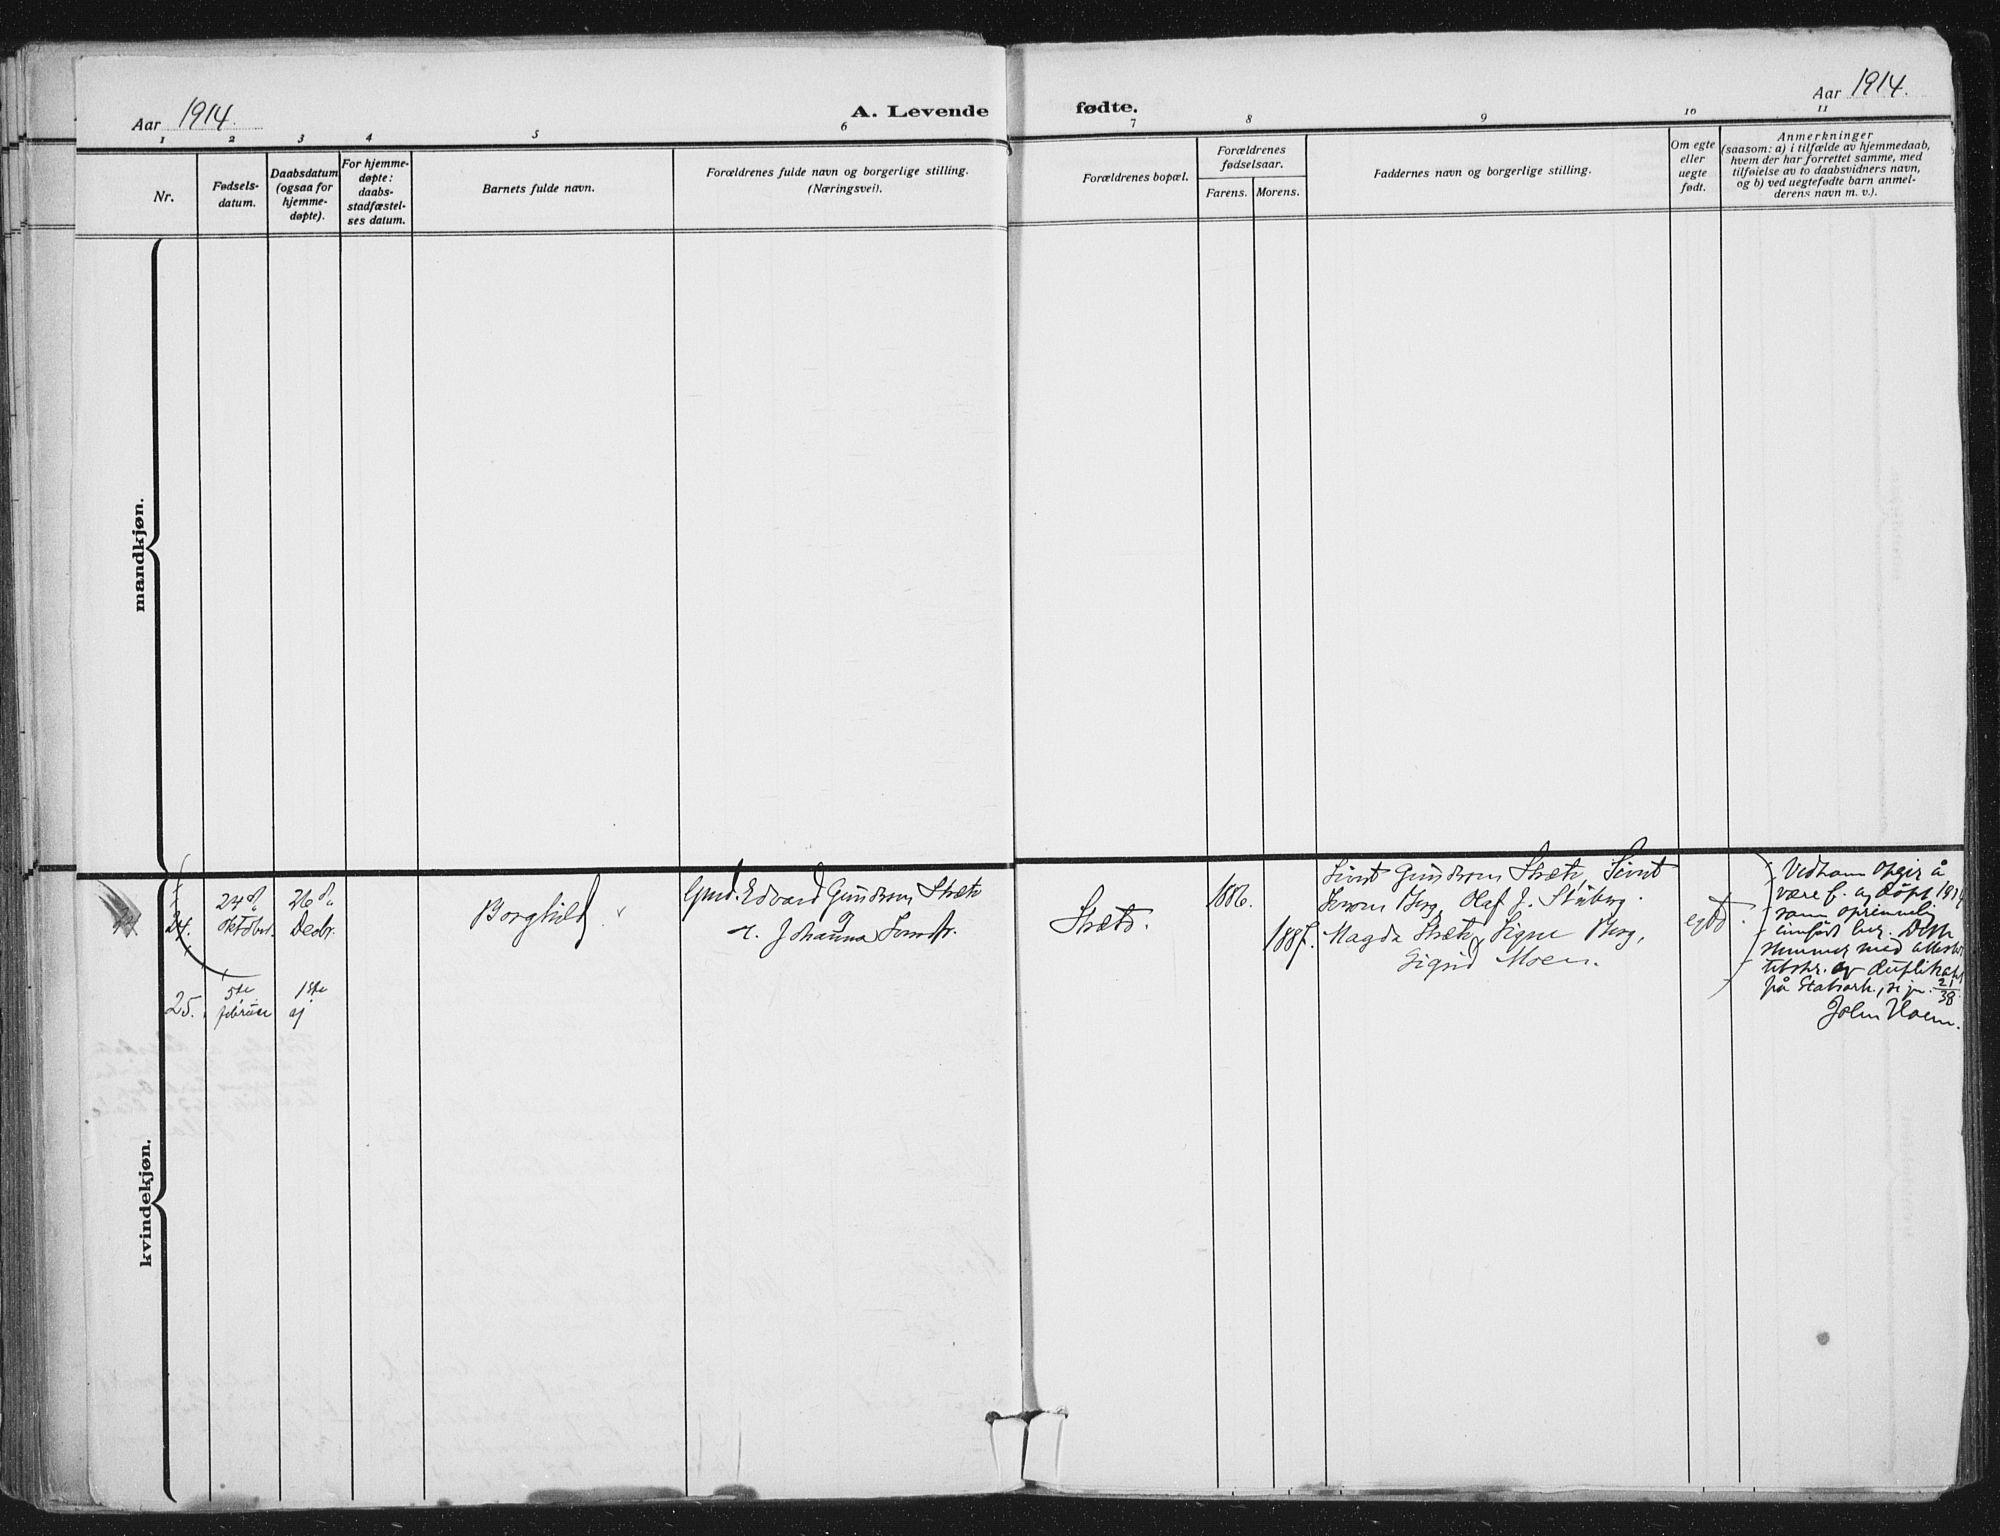 Aar 1914.
A. Levende fødte.
Aar 1914.
1 2 3 4 5 6 7 8 9 10 11
Nr.
Fødsels-
datum.
Daabsdatum
(ogsaa for
hjemme-
døpte).
For hjemme-
døpte:
daabs-
stadfæstel-
ses datum.
Barnets fulde navn.
Forældrenes fulde navn og borgerlige stilling.
(Næringsvei).
Forældrenes bopæl.
Forældrenes
fødselsaar.
Farens. Morens.
Faddernes navn og borgerlige stilling.
Om egte
eller
uegte
født.
Anmerkninger
(saasom: a) i tilfælde av hjemmedaab,
hvem der har forrettet samme, med
tilføielse av to daabsvidners navn,
og b) ved uegtefødte barn anmel-
derens navn m. v.).
mandkjøn.
kvindekjøn.
24.
24de
Oktober.
26de
Decbr.
Borghild
Gmd. Edvard Gundersen Stræte
Johanna
Stræte.
1886.
1887.
Sivert Gundersen Stræte, Sivert
Berg, Olaf J.
Magda Stræte, Signe Berg,
Sigrid Moen.
egte.
Vedkom. opgir å
være f. og døpt 1914
som oprinnelig
innført her. Dette
stemmer med
utskr. og duplikatet
på Statsark., se jn. 21/38.
John Hoem.
25.
5te
februar
1ste